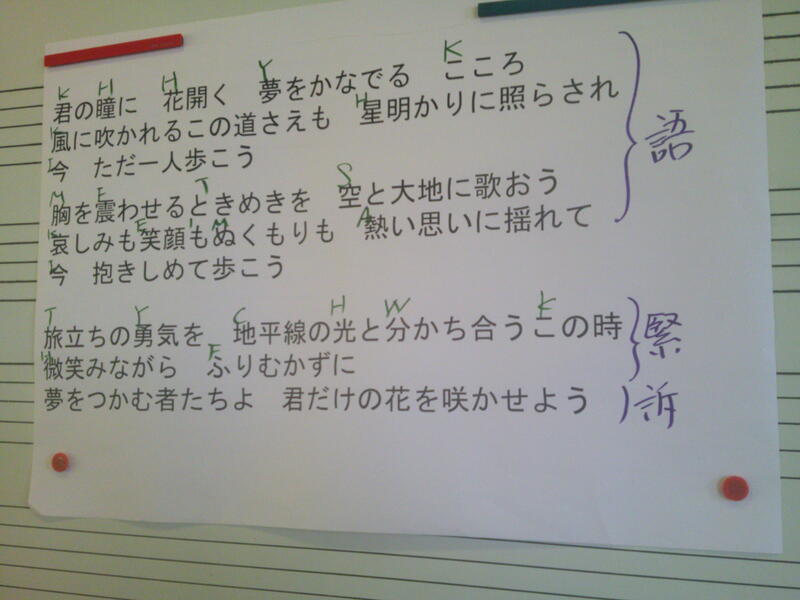 K H H Y K
君の瞳に 花開く 夢をかなでる こころ
K H
風に吹かれるこの道さえも 星明かりに照らされ
I
今 ただ一人歩こう
語
M F T S
胸を震わせるときめきを 空と大地に歌おう
K E M A
哀しみも笑顔もぬくもりも 熱い思いに揺れて
I
今 抱きしめて歩こう
T Y C H W K
旅立ちの勇気を 地平線の光と分かち合うこの時
H F
微笑みながら ふりむかずに
緊
夢をつかむ者たちよ 君だけの花を咲かせよう
訴